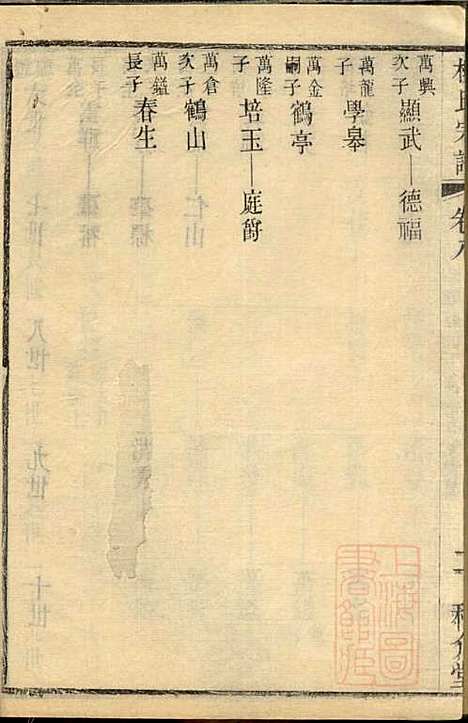 氏宗譜 卷八 二
萬興次子 顯武—德福
萬龍子 學皋
萬金嗣子 鶴亭
萬隆子 培玉—庭爵
萬倉次子 鶴山
萬鎰長子 春生
上海圖書館藏